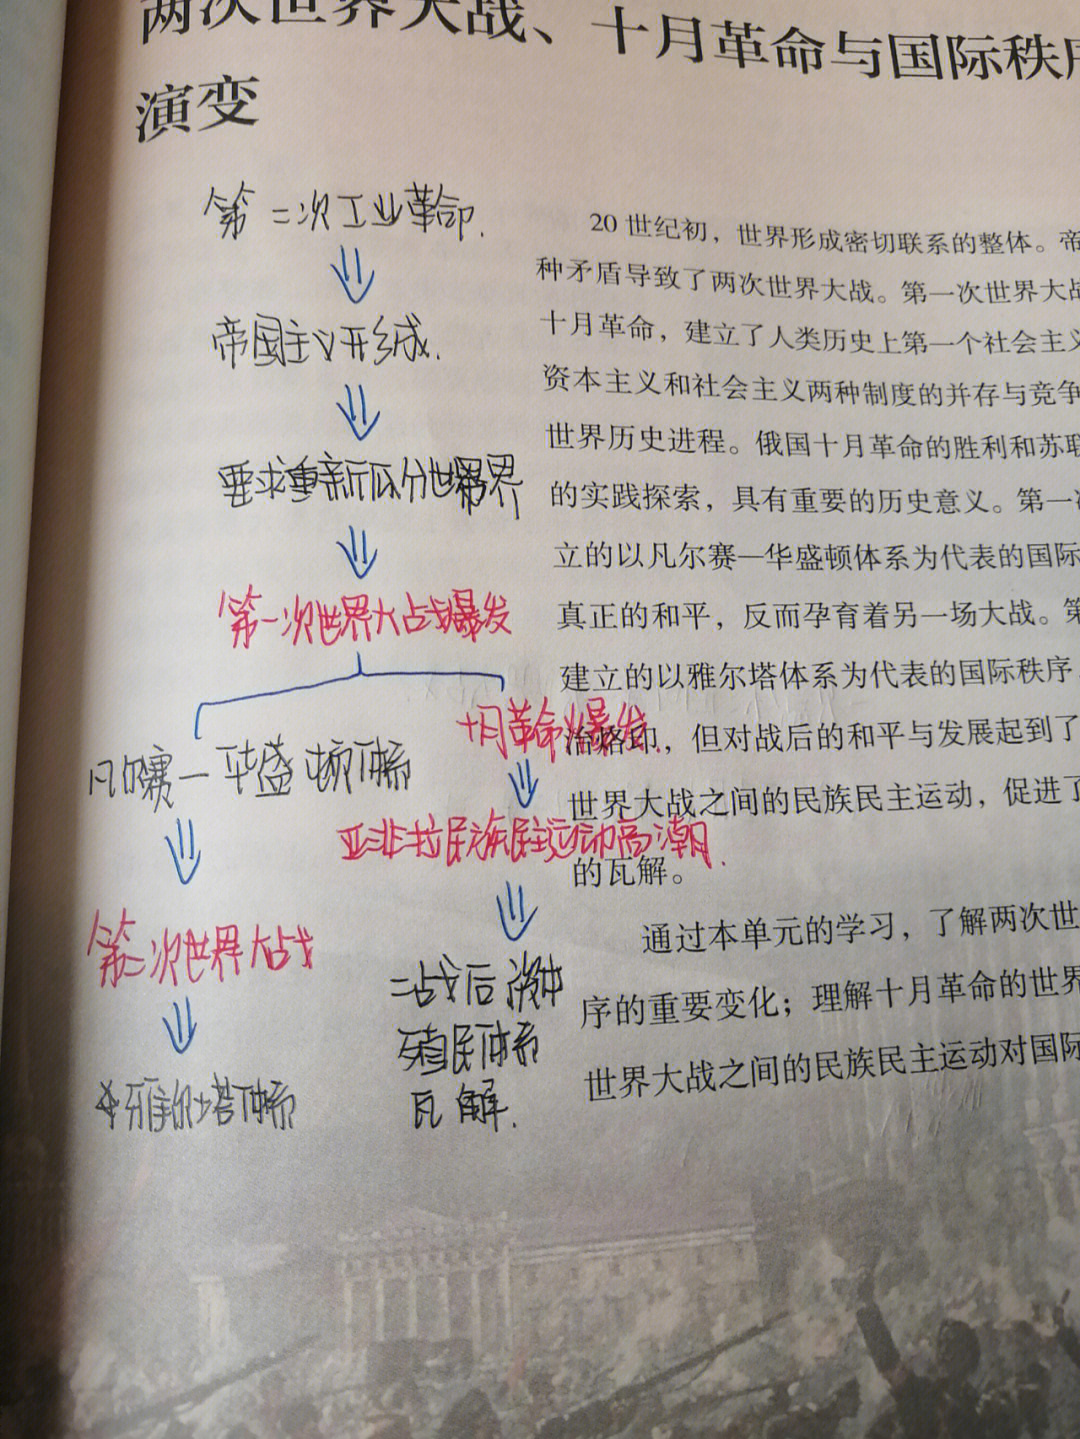 两次世界大战、十月革命与国际秩序
演变
第二次工业革命.
帝国主义形成.
要求重新瓜分世界
第一次世界大战爆发
凡尔赛一华盛顿体系
第二次世界大战
雅尔塔体系
十月革命爆发
亚非拉民族民主运动高潮.
二战后
殖民体系
瓦解.
20世纪初，世界形成密切联系的整体。帝
种矛盾导致了两次世界大战。第一次世界大战
十月革命，建立了人类历史上第一个社会主义
资本主义和社会主义两种制度的并存与竞争
世界历史进程。俄国十月革命的胜利和苏联
的实践探索，具有重要的历史意义。第一次
立的以凡尔赛—华盛顿体系为代表的国际
真正的和平，反而孕育着另一场大战。第
建立的以雅尔塔体系为代表的国际秩序
治格印，但对战后的和平与发展起到了
世界大战之间的民族民主运动，促进了
的瓦解。
通过本单元的学习，了解两次世
序的重要变化；理解十月革命的世界
世界大战之间的民族民主运动对国际